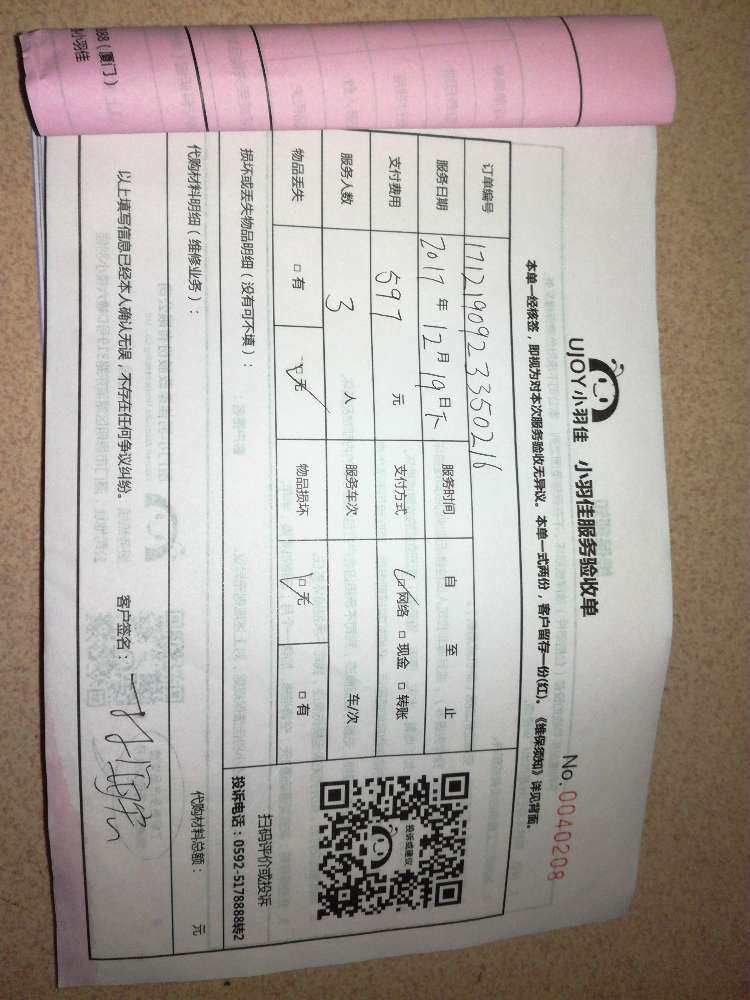 88（厦门）
小羽佳
UJOY小羽佳 小羽佳服务验收单
No.0040208
本单一经核签，即视为对本次服务验收无异议。本单一式两份，客户留存一份(红)。《维保须知》详见背面。
订单编号 1712190923350216
服务日期 2017年12月19日下 服务时间 自 至 止
支付费用 597 元 支付方式 □网络 □现金 □转账
服务人数 3 人 服务车次 车/次
物品丢失 □有 □无 物品损坏 □无 □有
投诉或建议
扫码评价或投诉
投诉电话：0592-5178888转2
损坏或丢失物品明细（没有可不填）：
代购材料明细（维修业务）： 代购材料总额： 元
以上填写信息已经本人确认无误，不存在任何争议纠纷。 客户签名：